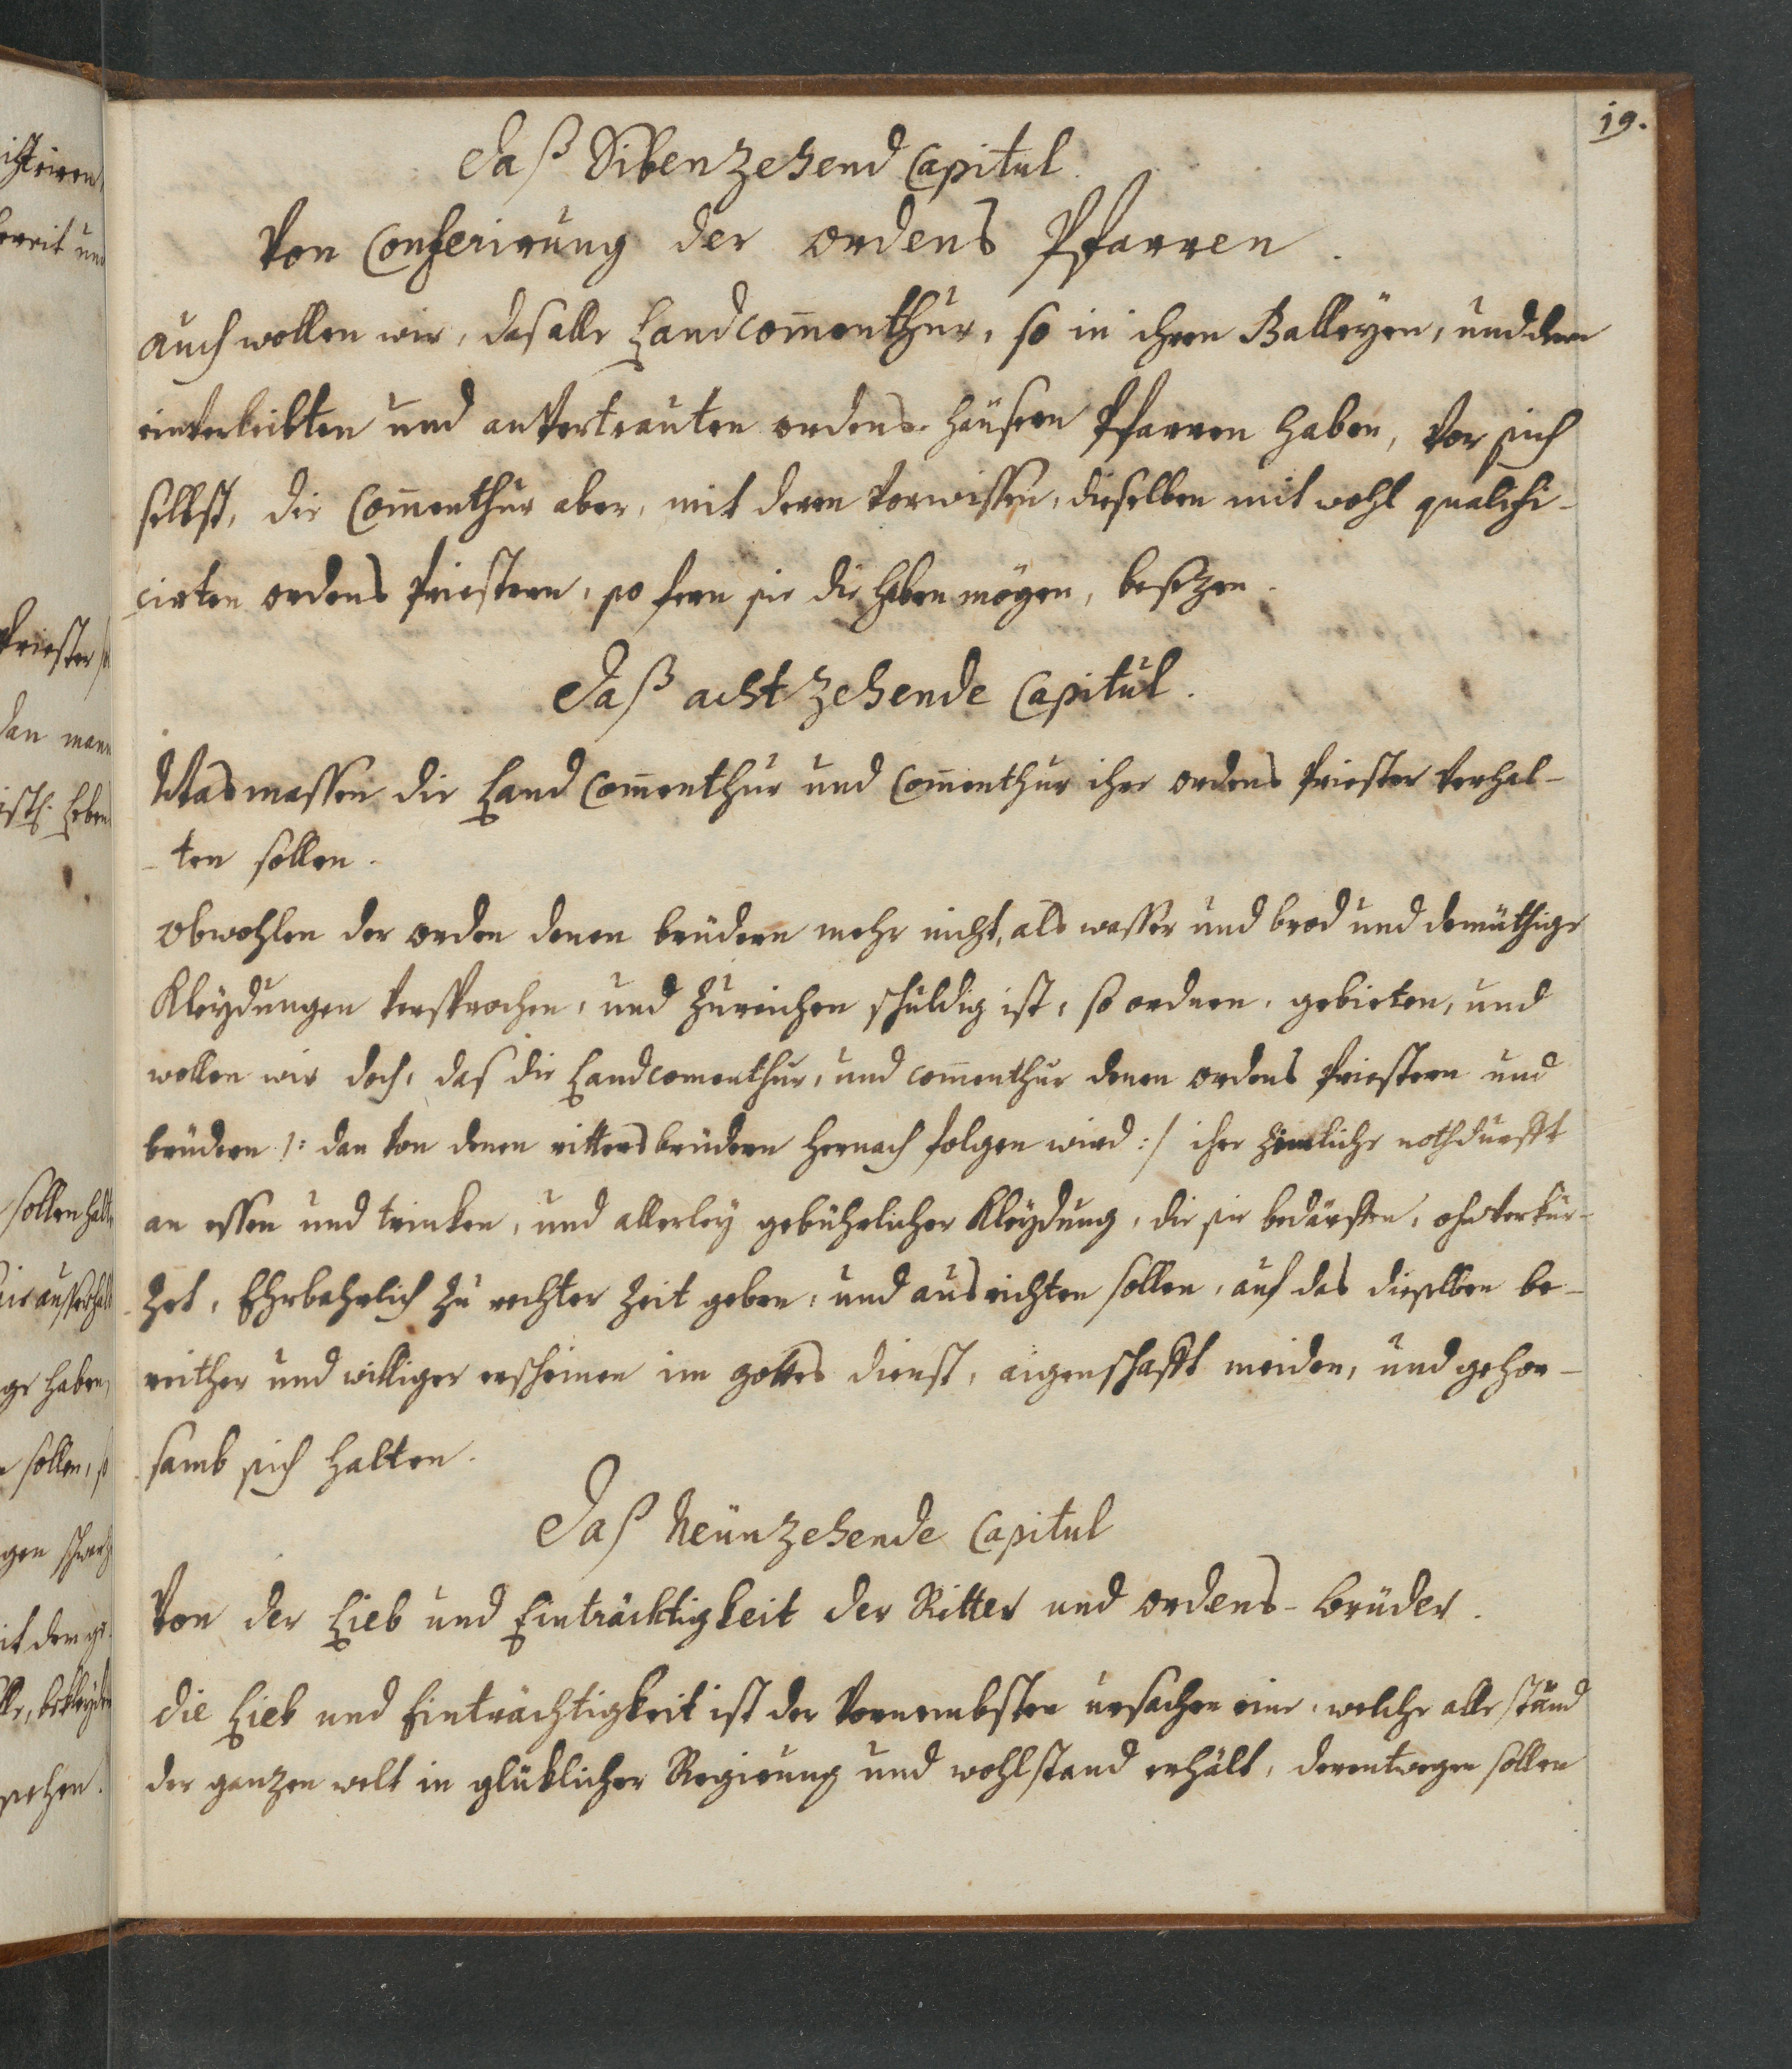 19.
Daß Sibenzehend Capitul.
Von Conferirung der ordens Pfarren.
auch wollen wir, daß alle Landcom̅enthur, so in ihren Balleyen, und dem
einverleibten und anvertrauten ordens häusern Pfarren haben, vor sich
selbst, die Com̅enthur aber, mit deren vorwissen, dieselben mit wohl qualifi-
cirten ordens Priestern, so fern sie die haben mögen, besezen.
Daß achtzehende Capitul.
Was massen die Land Com̅enthur und Com̅enthur ihre ordens Priester verhal-
-ten sollen.
obwohlen der orden denen brüdern mehr nicht, als wasser und brod und demüthige
Kleydungen versprochen, und zureichen schuldig ist, so ordnen, gebieten, und
wollen wir doch, daß die Landcomenthur, und com̅enthur denen ordens Priestern und
brüdern /: dan von denen rittersbrüdern hernach folgen wird :/ ihre zimliche nothdurfft
an essen und trinken, und allerley gebührlicher Kleydung, die sie bedärffen, ohnverkür-
zet, Ehrbahrlich zu rechter zeit geben, und ausrichten sollen, auf das dieselben be-
reither und williger erscheinen im gottes dienst, aigenschafft meiden, und gehor-
samb sich halten.
Daß Neünzehende Capitul
Von der Lieb und Einträchtigkeit der Ritter und ordens-brüder.
die Lieb und Einträchtigkeit ist der vornembsten ursachen eine, welche alle ständ
der ganzen welt in glüklicher Regirung und wohlstand erhält, derentwegen sollen